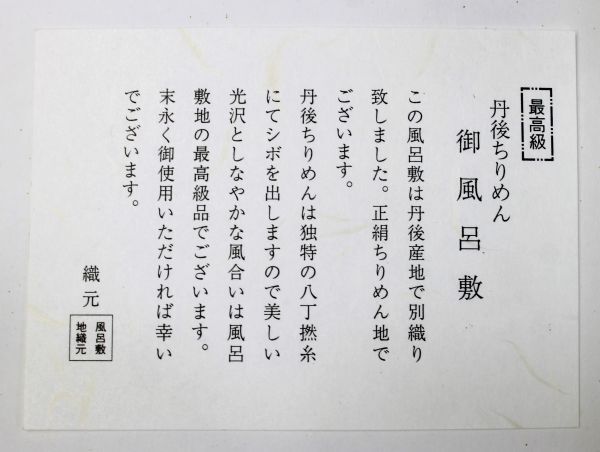 最高級
丹後ちりめん
御風呂敷
この風呂敷は丹後産地で別織り
致しました。正絹ちりめん地で
ございます。
丹後ちりめんは独特の八丁撚糸
にてシボを出しますので美しい
光沢としなやかな風合いは風呂
敷地の最高級品でございます。
末永く御使用いただければ幸い
でございます。
織元
風呂敷
地織元